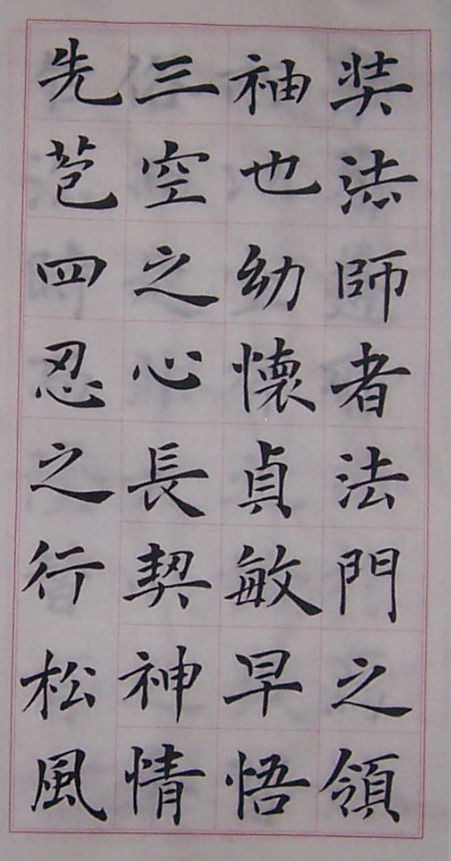 奘法師者法門之領
袖也幼懷貞敏早悟
三空之心長契神情
先苞四忍之行松風